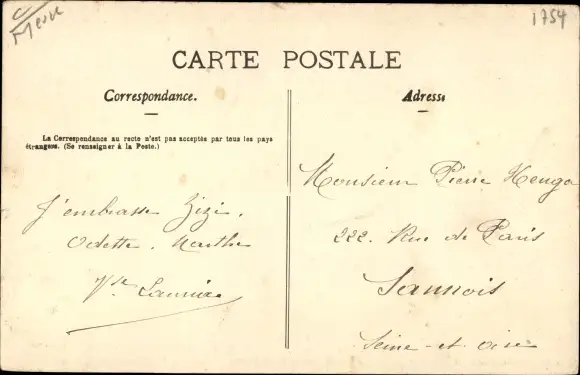 1754
CARTE POSTALE
Correspondance.
Adresse
La Correspondance au recto n'est pas acceptée par tous les pays
étrangers. (Se renseigner à la Poste.)
J'embrasse Zizi,
Odette, Marthe
Vve
Monsieur Pierre Henga
222. Rue de Paris
Sannois
Seine-et-Oise